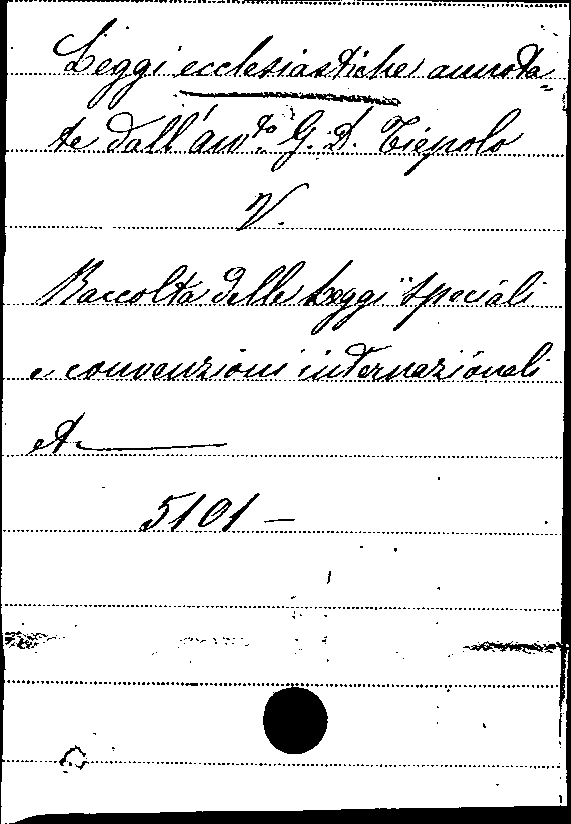 Leggi ecclesiastiche annota=
te dall'avv.to G. D. Tiepolo
V.
Raccolta delle leggi speciali
e convenzioni internazionali
etc
5101 —